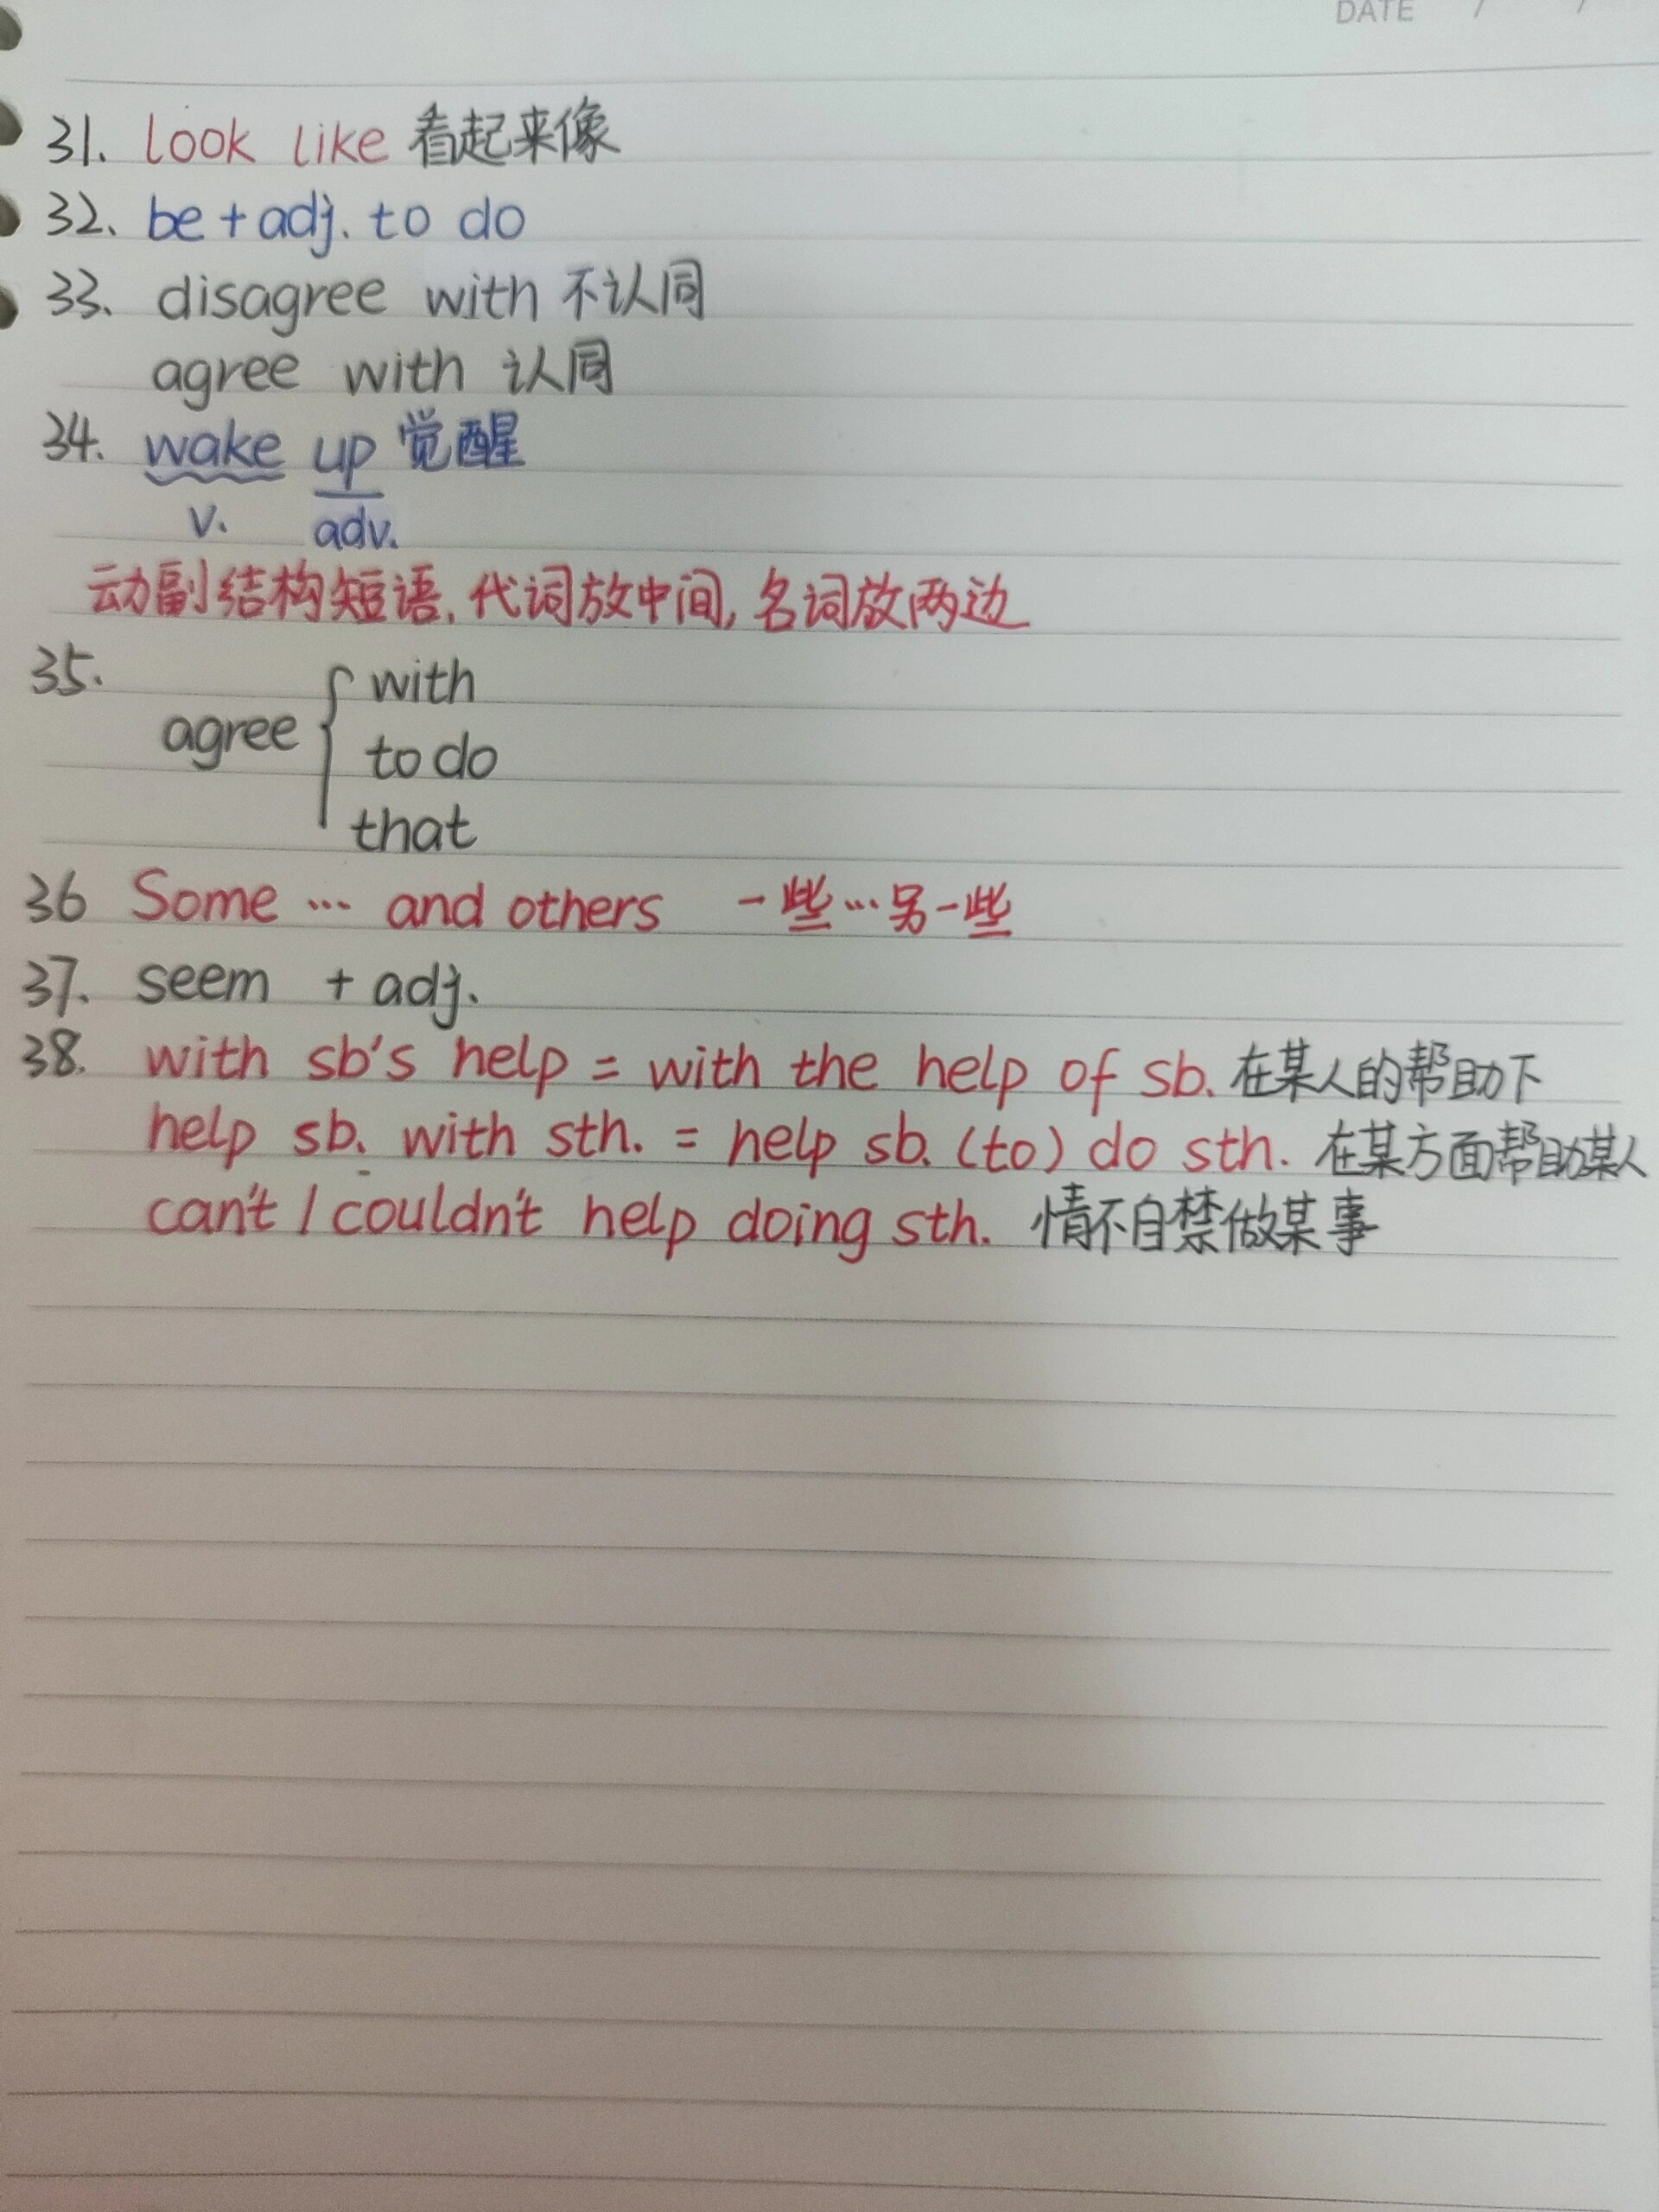 DATE / /
31. look like 看起来像
32. be + adj. to do
33. disagree with 不认同
agree with 认同
34. wake up 觉醒
v. adv.
动副结构短语, 代词放中间, 名词放两边
35.
with
agree {
to do
that
36 Some … and others 一些…另一些
37. seem + adj.
38. with sb's help = with the help of sb. 在某人的帮助下
help sb. with sth. = help sb. (to) do sth. 在某方面帮助某人
can't / couldn't help doing sth. 情不自禁做某事